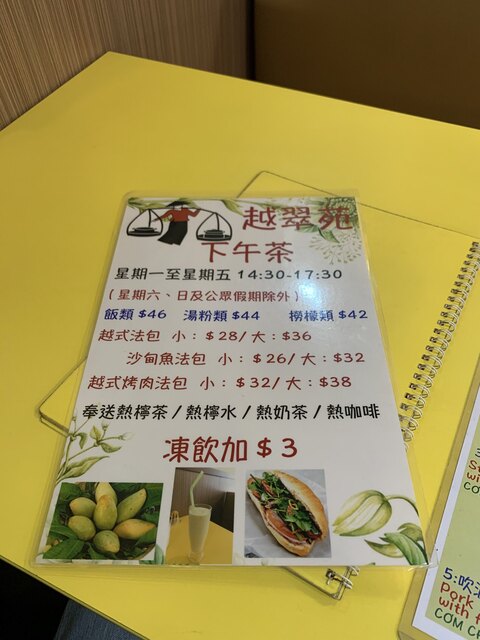 越翠苑
下午茶
星期一至星期五 14:30-17:30
(星期六、日及公眾假期除外)
飯類 $46 湯粉類 $44 擰檬類 $42
越式法包 小：$28/大：$36
沙甸魚法包 小：$26/大：$32
越式烤肉法包 小：$32/大：$38
奉送熱檸茶/熱檸水/熱奶茶/熱咖啡
凍飲加$3
5:吹
Pork
with
COM